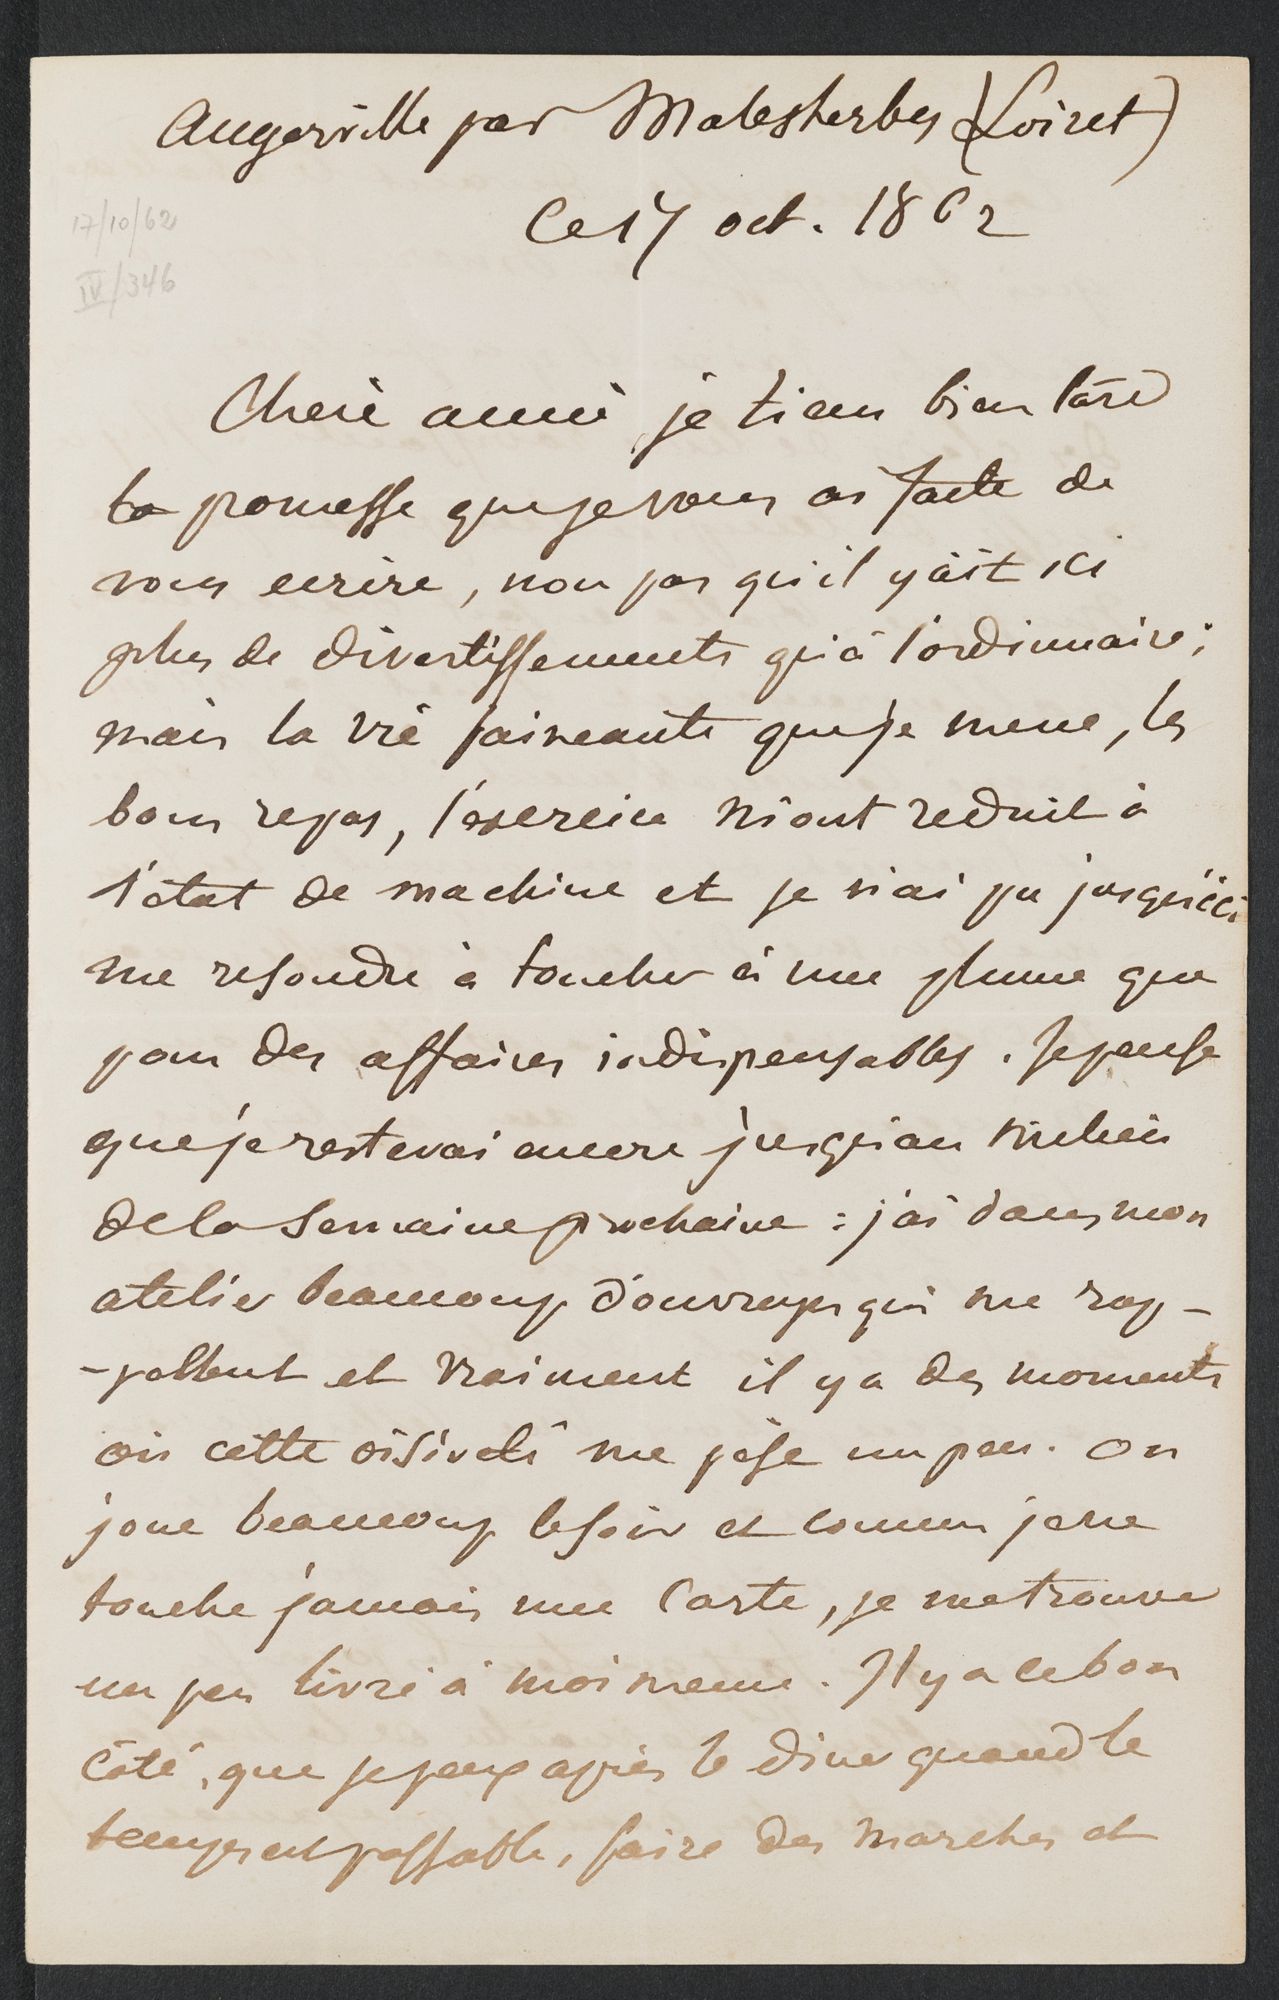 Augerville par Malesherbes (Loiret)
Ce 17 oct. 1862
17/10/62
IV/346
Chere amie, je tiens bien tard
la promesse que je vous ai faite de
vous ecrire, non pas qu'il y ait ici
plus de divertissements qu'à l'ordinnaire ;
mais la vie faineante que je mene, les
bons repas, l'exercice m'ont reduit à
l'état de machine et je n'ai pu jusqu'ici
me resoudre à toucher à une plume que
pour des affaires indispensables. Je pense
que je resterai encore jusqu'au milieu
de la semaine prochaine : j'ai dans mon
atelier beaucoup d'ouvrages qui me rap-
-pellent et vraiment il y a des moments
où cette oisiveté me pèse un peu. On
joue beaucoup le soir et comme je ne
touche jamais une carte, je me trouve
un peu livré à moi meme. Il y a ce bon
côté, que je peux après le diner quand le
temps est passable, faire des marches et